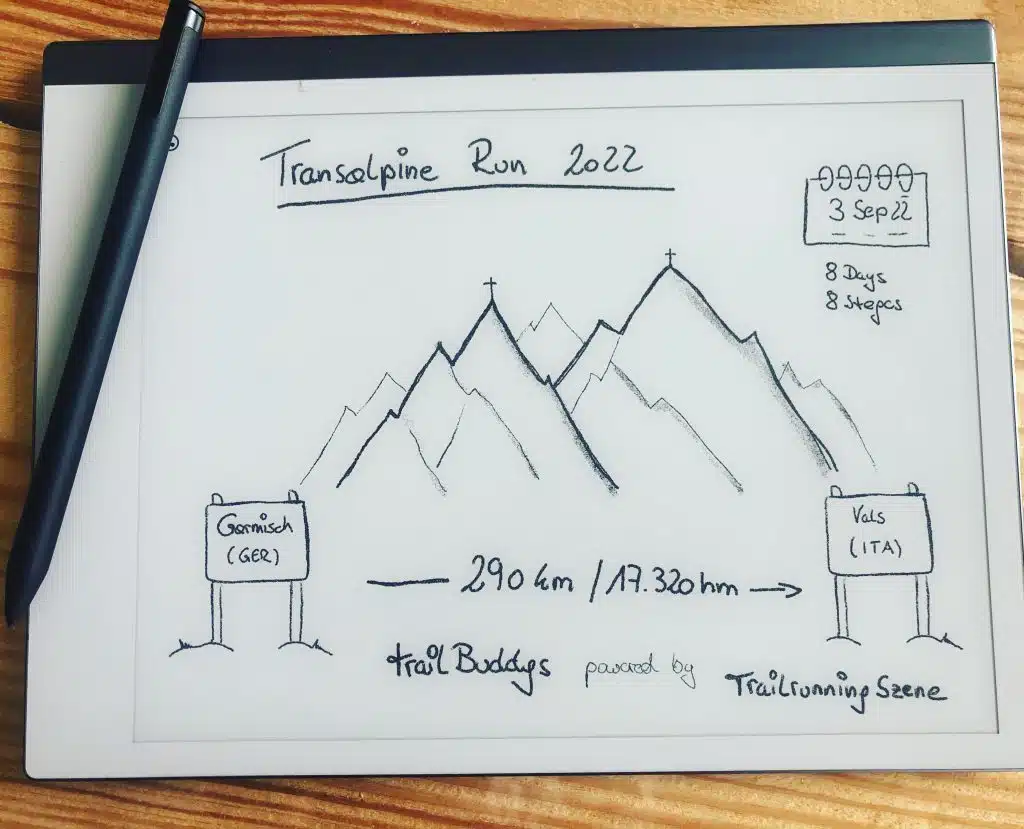 Transalpine Run 2022
3 Sep 22
8 Days
8 Stepes
Garmisch
(GER)
Vals
(ITA)
290 km / 17.320 hm
trailBuddys powered by Trailrunning Szene